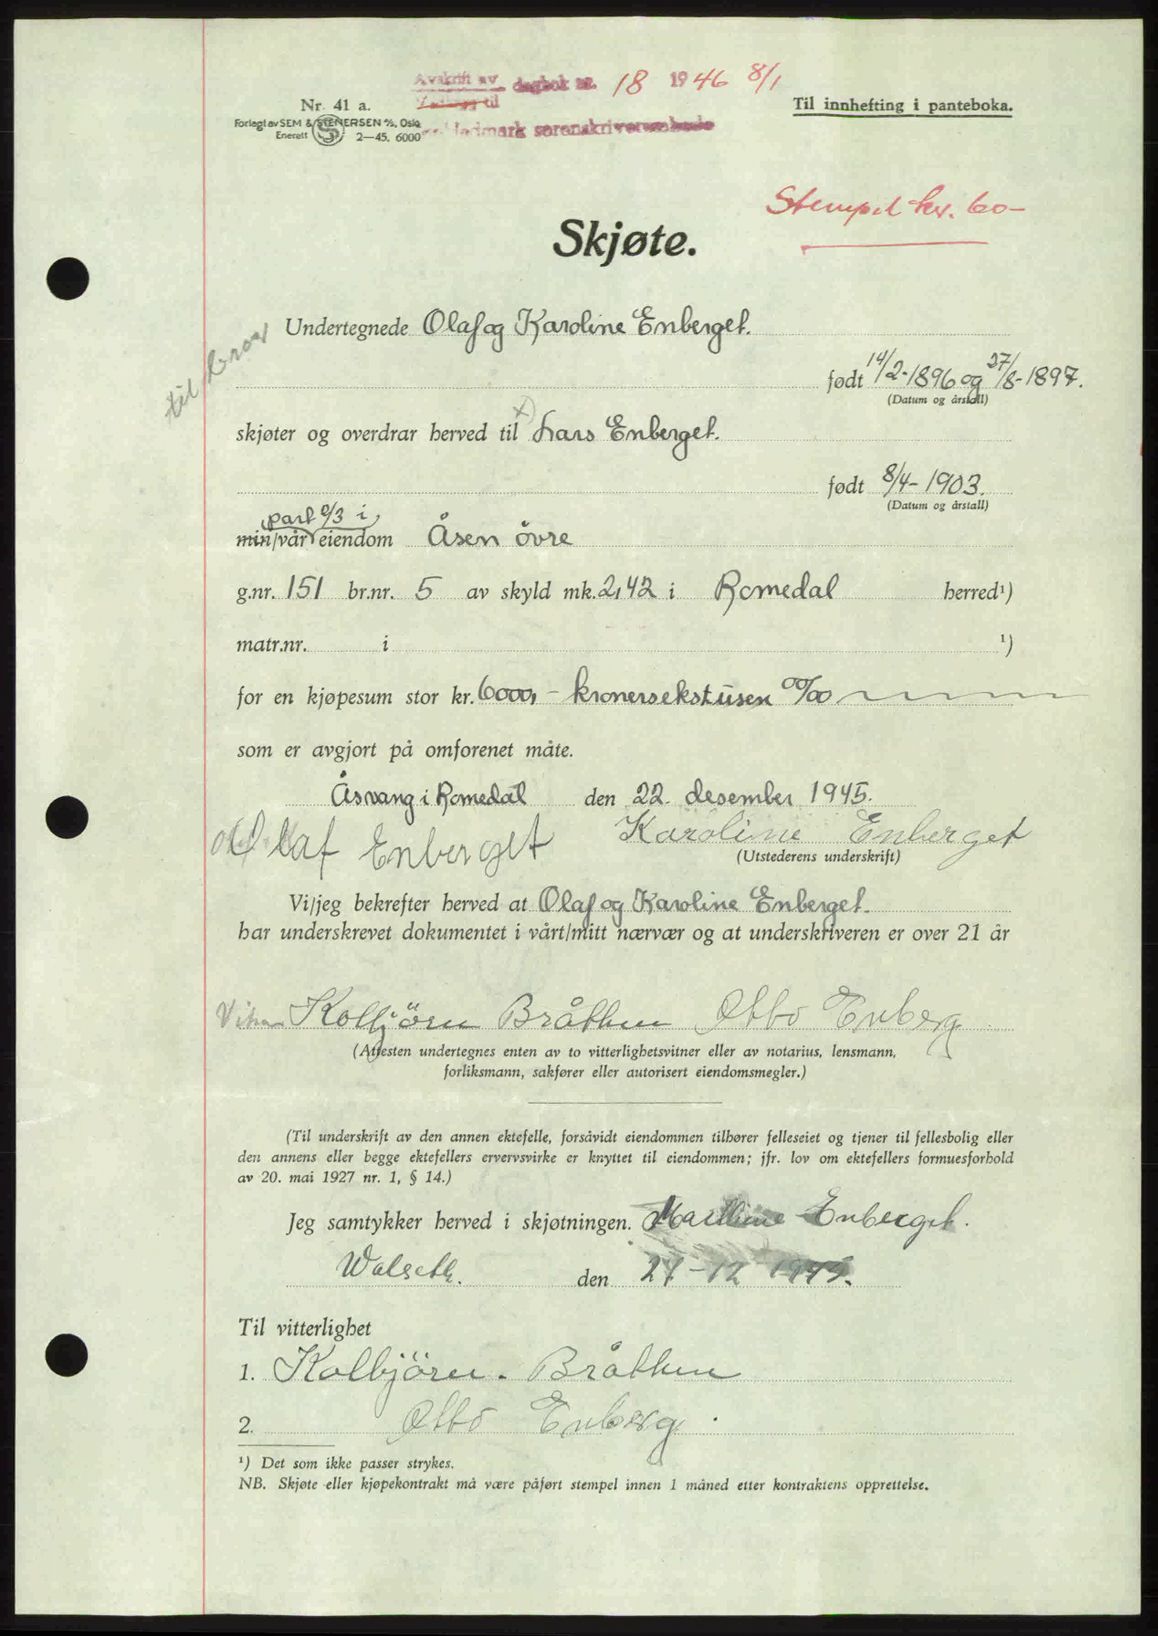 Avskrift av
Vedlegg til dagbok nr. 18 1946 8/1
Nr. 41 a.
Til innhefting i panteboka.
Forlagt av SEM & STENERSEN A/S, Oslo
Enerett 2—45. 6000
Hedmark sorenskriverembede
Stempel kr. 60-
Skjøte.
Undertegnede Olaf og Karoline Enberget.
til bror
født 14/2-1896 og 27/8-1897.
(Datum og årstall)
skjøter og overdrar herved til x) Lars Enberget.
født 8/4-1903.
(Datum og årstall)
part 2/3 i
min/vår eiendom Åsen övre
g.nr. 151 br.nr. 5 av skyld mk. 2,42 i Romedal herred¹)
matr.nr. i ¹)
for en kjøpesum stor kr. 6000,- kronersekstusen 00/00
som er avgjort på omforenet måte.
Åsvang i Romedal den 22. desember 1945.
Olaf Enberget Karoline Enberget
(Utstederens underskrift)
Vi/jeg bekrefter herved at Olaf og Karoline Enberget.
har underskrevet dokumentet i vårt/mitt nærvær og at underskriveren er over 21 år
Kolbjörn Bråthen Otto Enberg
(Attesten undertegnes enten av to vitterlighetsvitner eller av notarius, lensmann,
forliksmann, sakfører eller autorisert eiendomsmegler.)
(Til underskrift av den annen ektefelle, forsåvidt eiendommen tilhører felleseiet og tjener til fellesbolig eller
den annens eller begge ektefellers ervervsvirke er knyttet til eiendommen; jfr. lov om ektefellers formuesforhold
av 20. mai 1927 nr. 1, § 14.)
Jeg samtykker herved i skjøtningen. Enberget.
den 27-12 1945.
Til vitterlighet
1. Kolbjörn. Bråthen
2. Otto Enberg.
¹) Det som ikke passer strykes.
NB. Skjøte eller kjøpekontrakt må være påført stempel innen 1 måned etter kontraktens opprettelse.